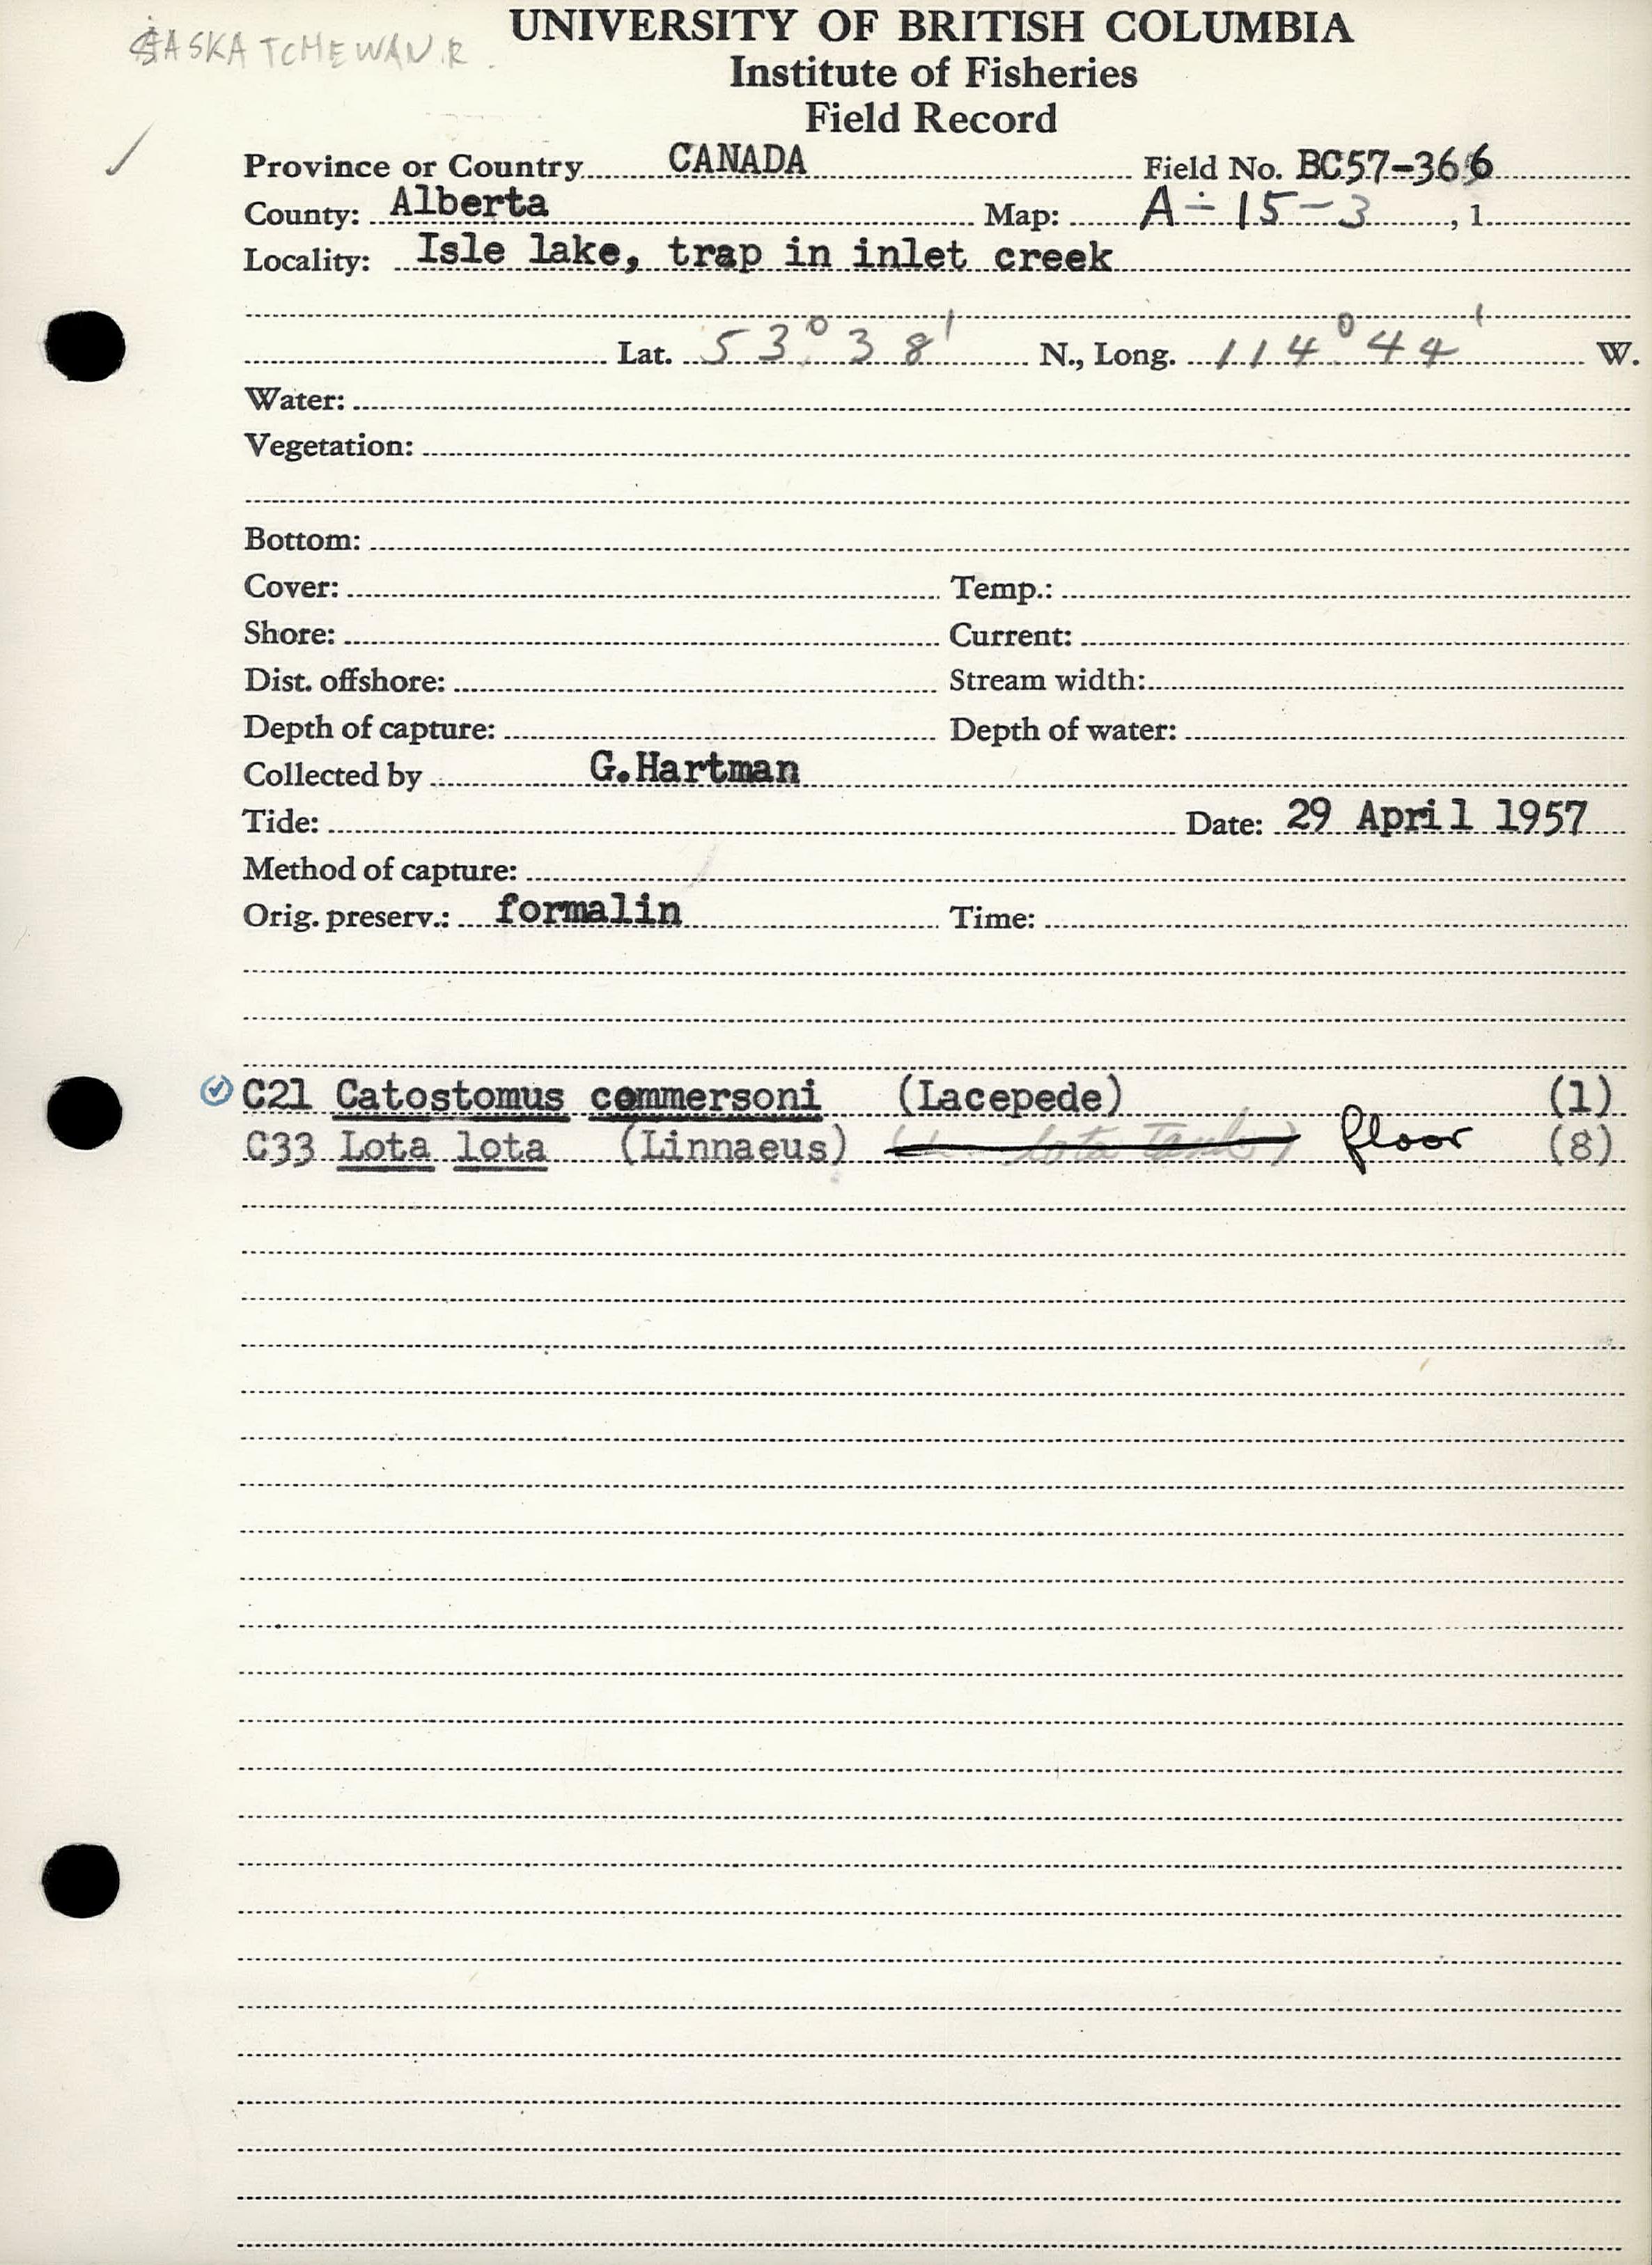 SASKATCHEWAN R.
UNIVERSITY OF BRITISH COLUMBIA
Institute of Fisheries
Field Record
Province or Country CANADA Field No. BC57-366
County: Alberta Map: A-15-3, 1
Locality: Isle lake, trap in inlet creek
Lat. 53°38' N., Long. 114°44' W.
Water:
Vegetation:
Bottom:
Cover: Temp.:
Shore: Current:
Dist. offshore: Stream width:
Depth of capture: Depth of water:
Collected by G.Hartman
Tide: Date: 29 April 1957
Method of capture:
Orig. preserv.: formalin Time:
C21 Catostomus commersoni (Lacepede) (1)
C33 Lota lota (Linnaeus) lota tank) floor (8)